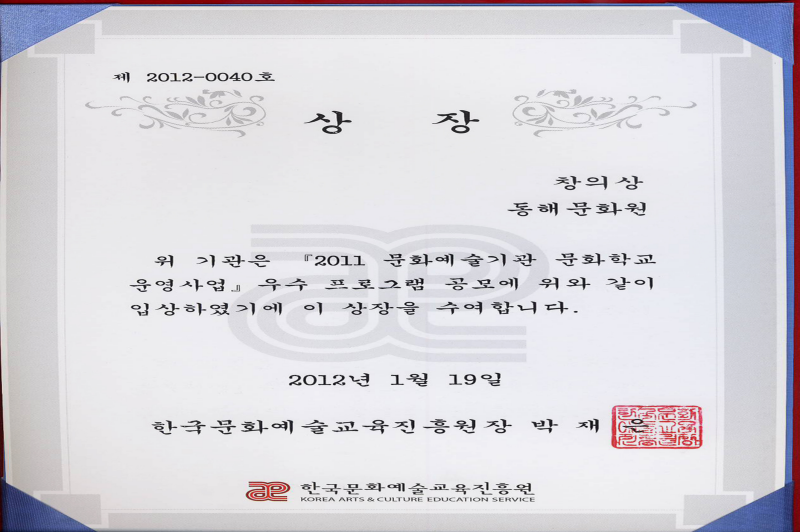 제 2012-0040호
상 장
창의상
동해문화원
위 기관은 『2011 문화예술기관 문화학교
운영사업』 우수 프로그램 공모에 위와 같이
입상하였기에 이 상장을 수여합니다.
2012년 1월 19일
한국문화예술교육진흥원장 박 재 은
한국문화예술교육진흥원
KOREA ARTS & CULTURE EDUCATION SERVICE